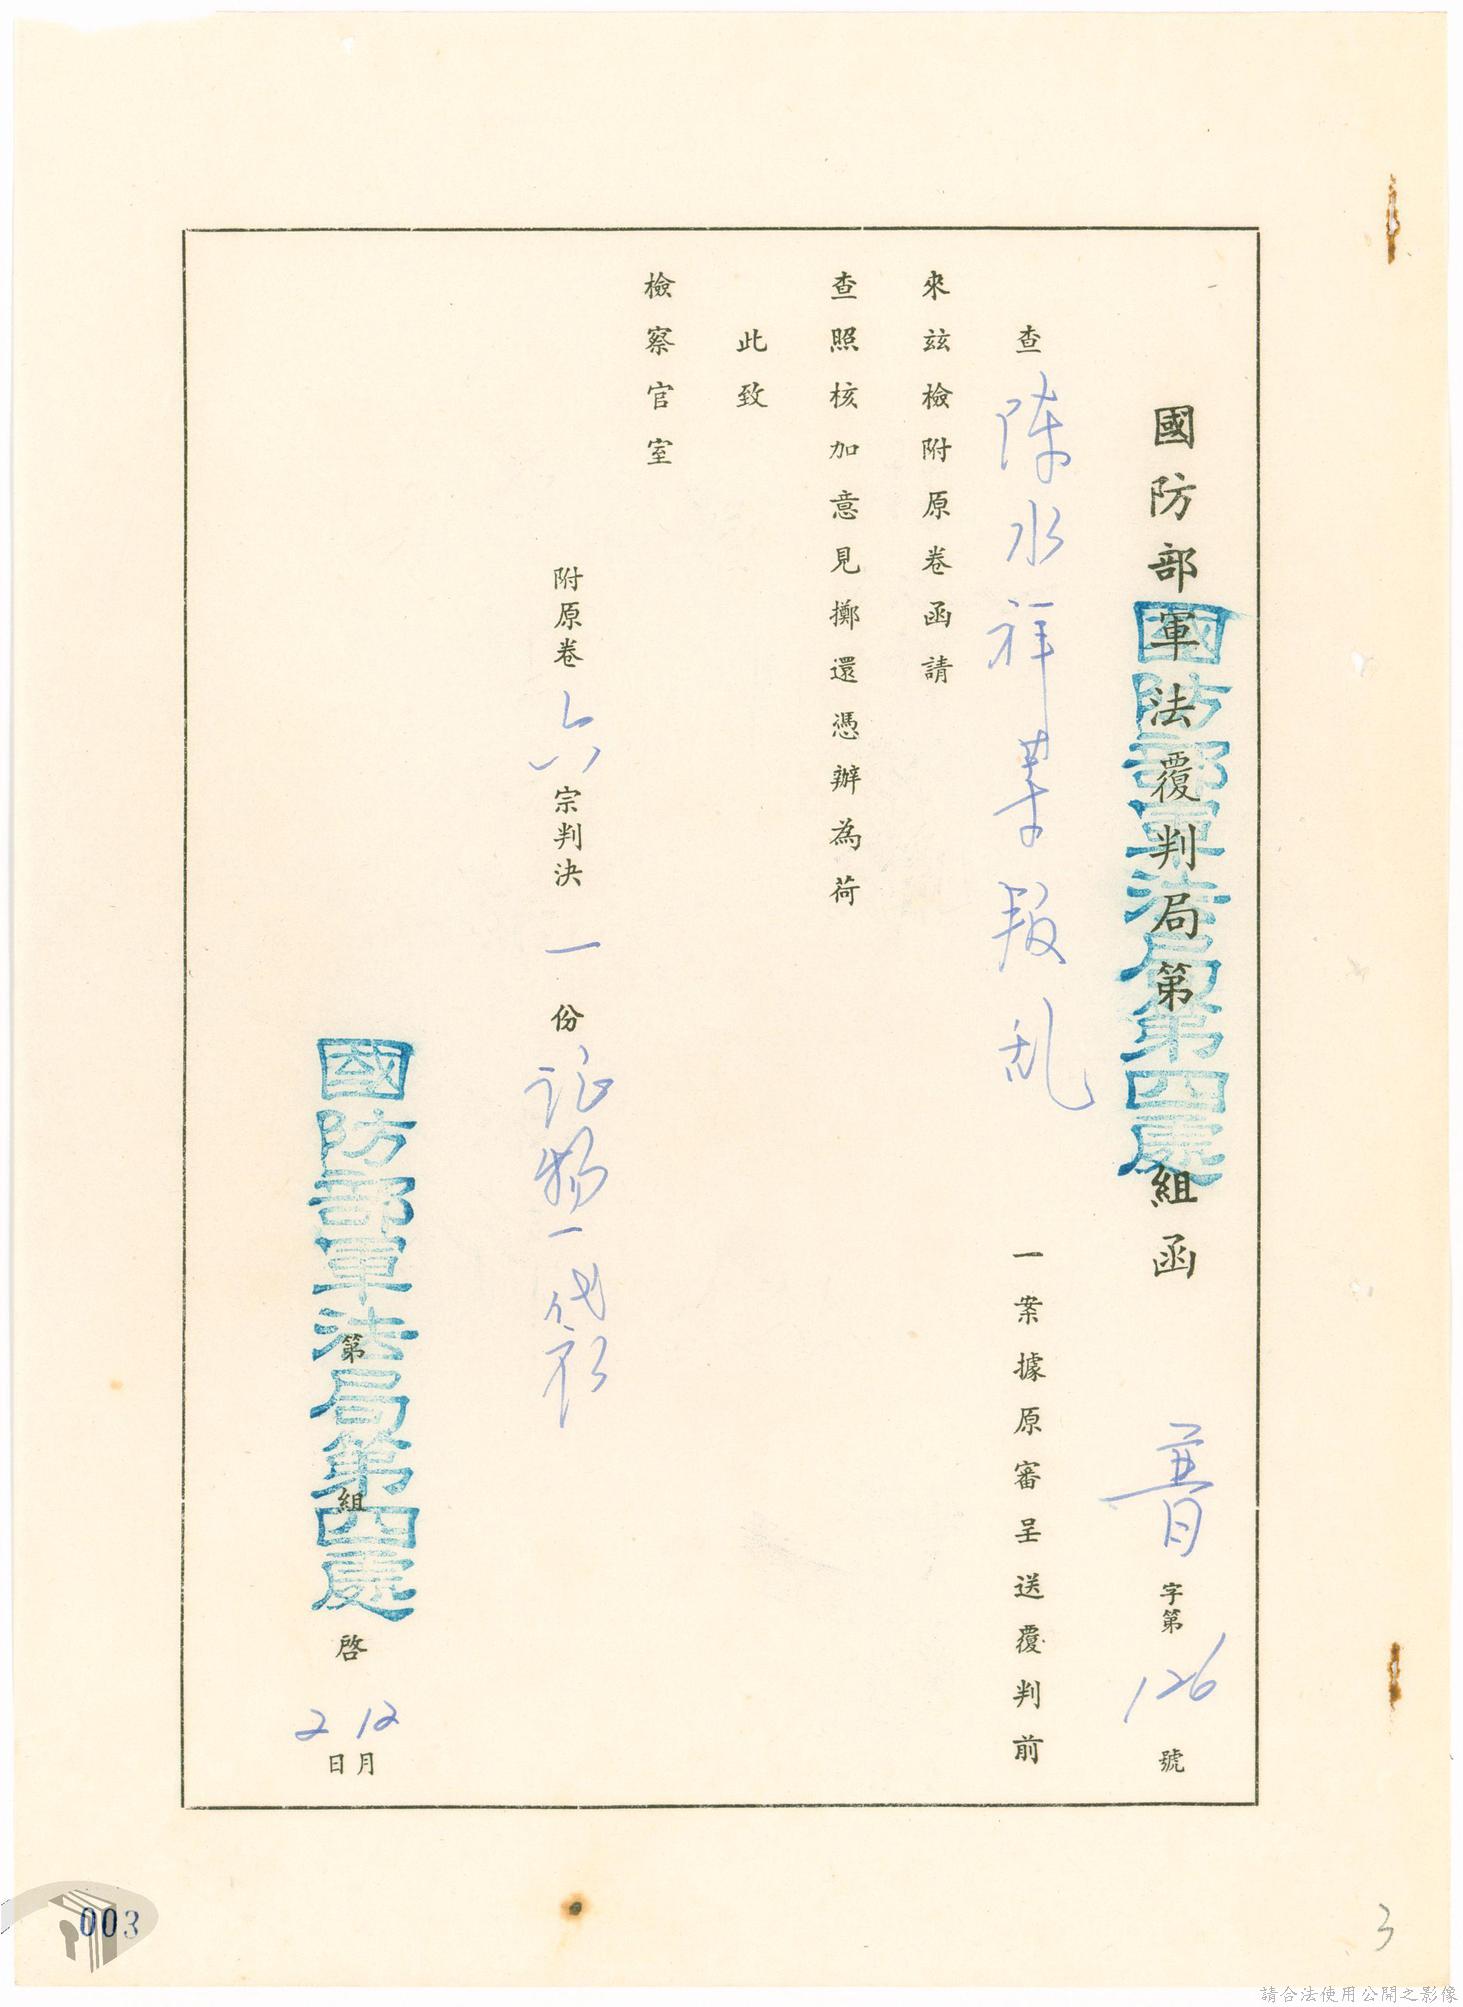 國防部軍法覆判局第 組函 普字第126號
國防部軍法局第四處
查陳水祥等叛乱一案據原審呈送覆判前
來茲檢附原卷函請
查照核加意見擲還憑辦為荷
此致
檢察官室
附原卷六宗判決一份证物一袋
第 組 啓 12月2日
國防部軍法局第四處
003
3
請合法使用公開之影像